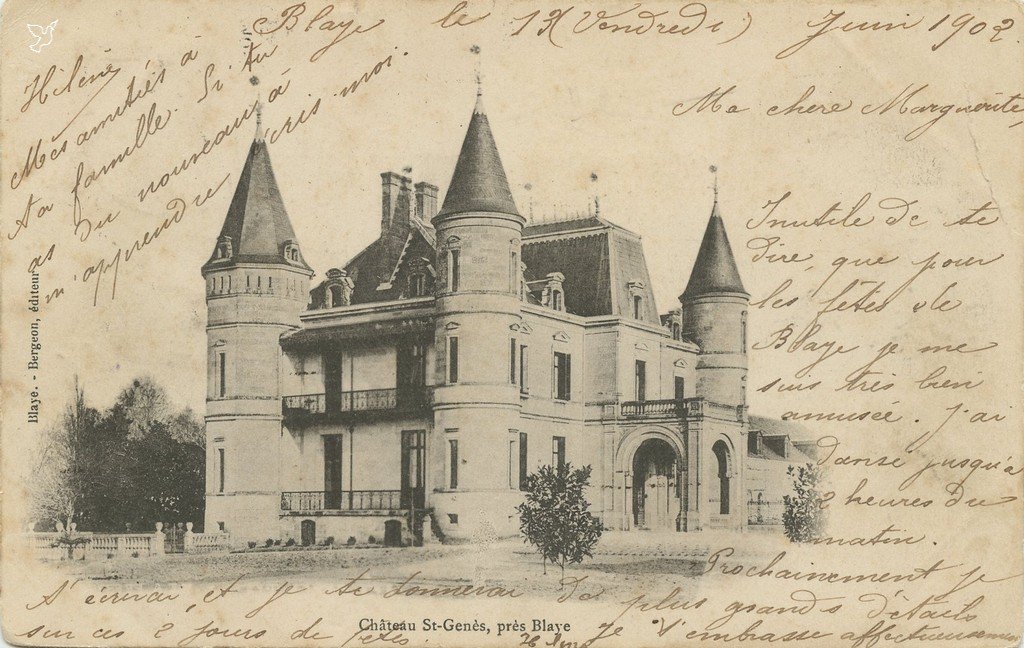 Blaye le 13 (Vendredi) Juin 1902
Ma chere Marguerite,
Inutile de te
dire, que pour
les fêtes de
Blaye je me
suis très bien
amusée. J'ai
Danse jusqu'à
2 heures du
matin.
Prochainement je
t'écrirai, et je te donnerai de plus grands détails
sur ces 2 jours de fêtes. Je t'embrasse affectueusement
Hélène
Hélène
Mes amitiés à
ta famille. Si tu
as du nouveau à
m'apprendre écris moi.
Blaye. - Bergeon, éditeur
Château St-Genès, près Blaye